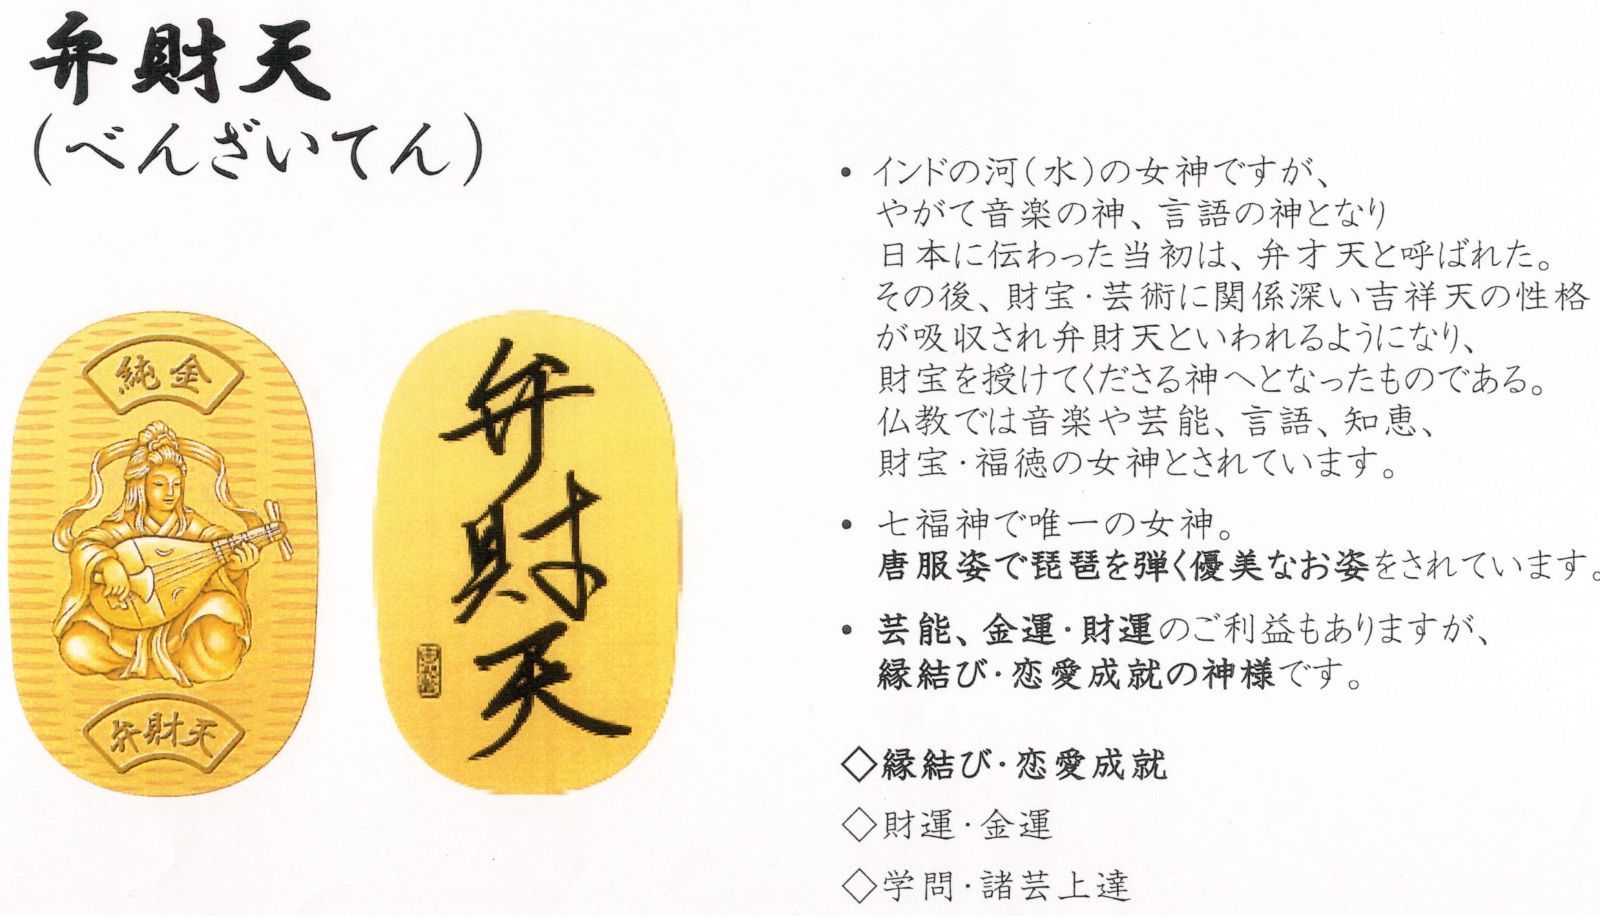 弁財天
(べんざいてん)
純金
弁財天
弁財天
• インドの河(水)の女神ですが、
やがて音楽の神、言語の神となり
日本に伝わった当初は、弁才天と呼ばれた。
その後、財宝・芸術に関係深い吉祥天の性格
が吸収され弁財天といわれるようになり、
財宝を授けてくださる神へとなったものである。
仏教では音楽や芸能、言語、知恵、
財宝・福徳の女神とされています。
• 七福神で唯一の女神。
唐服姿で琵琶を弾く優美なお姿をされています。
• 芸能、金運・財運のご利益もありますが、
縁結び・恋愛成就の神様です。
◇縁結び・恋愛成就
◇財運・金運
◇学問・諸芸上達